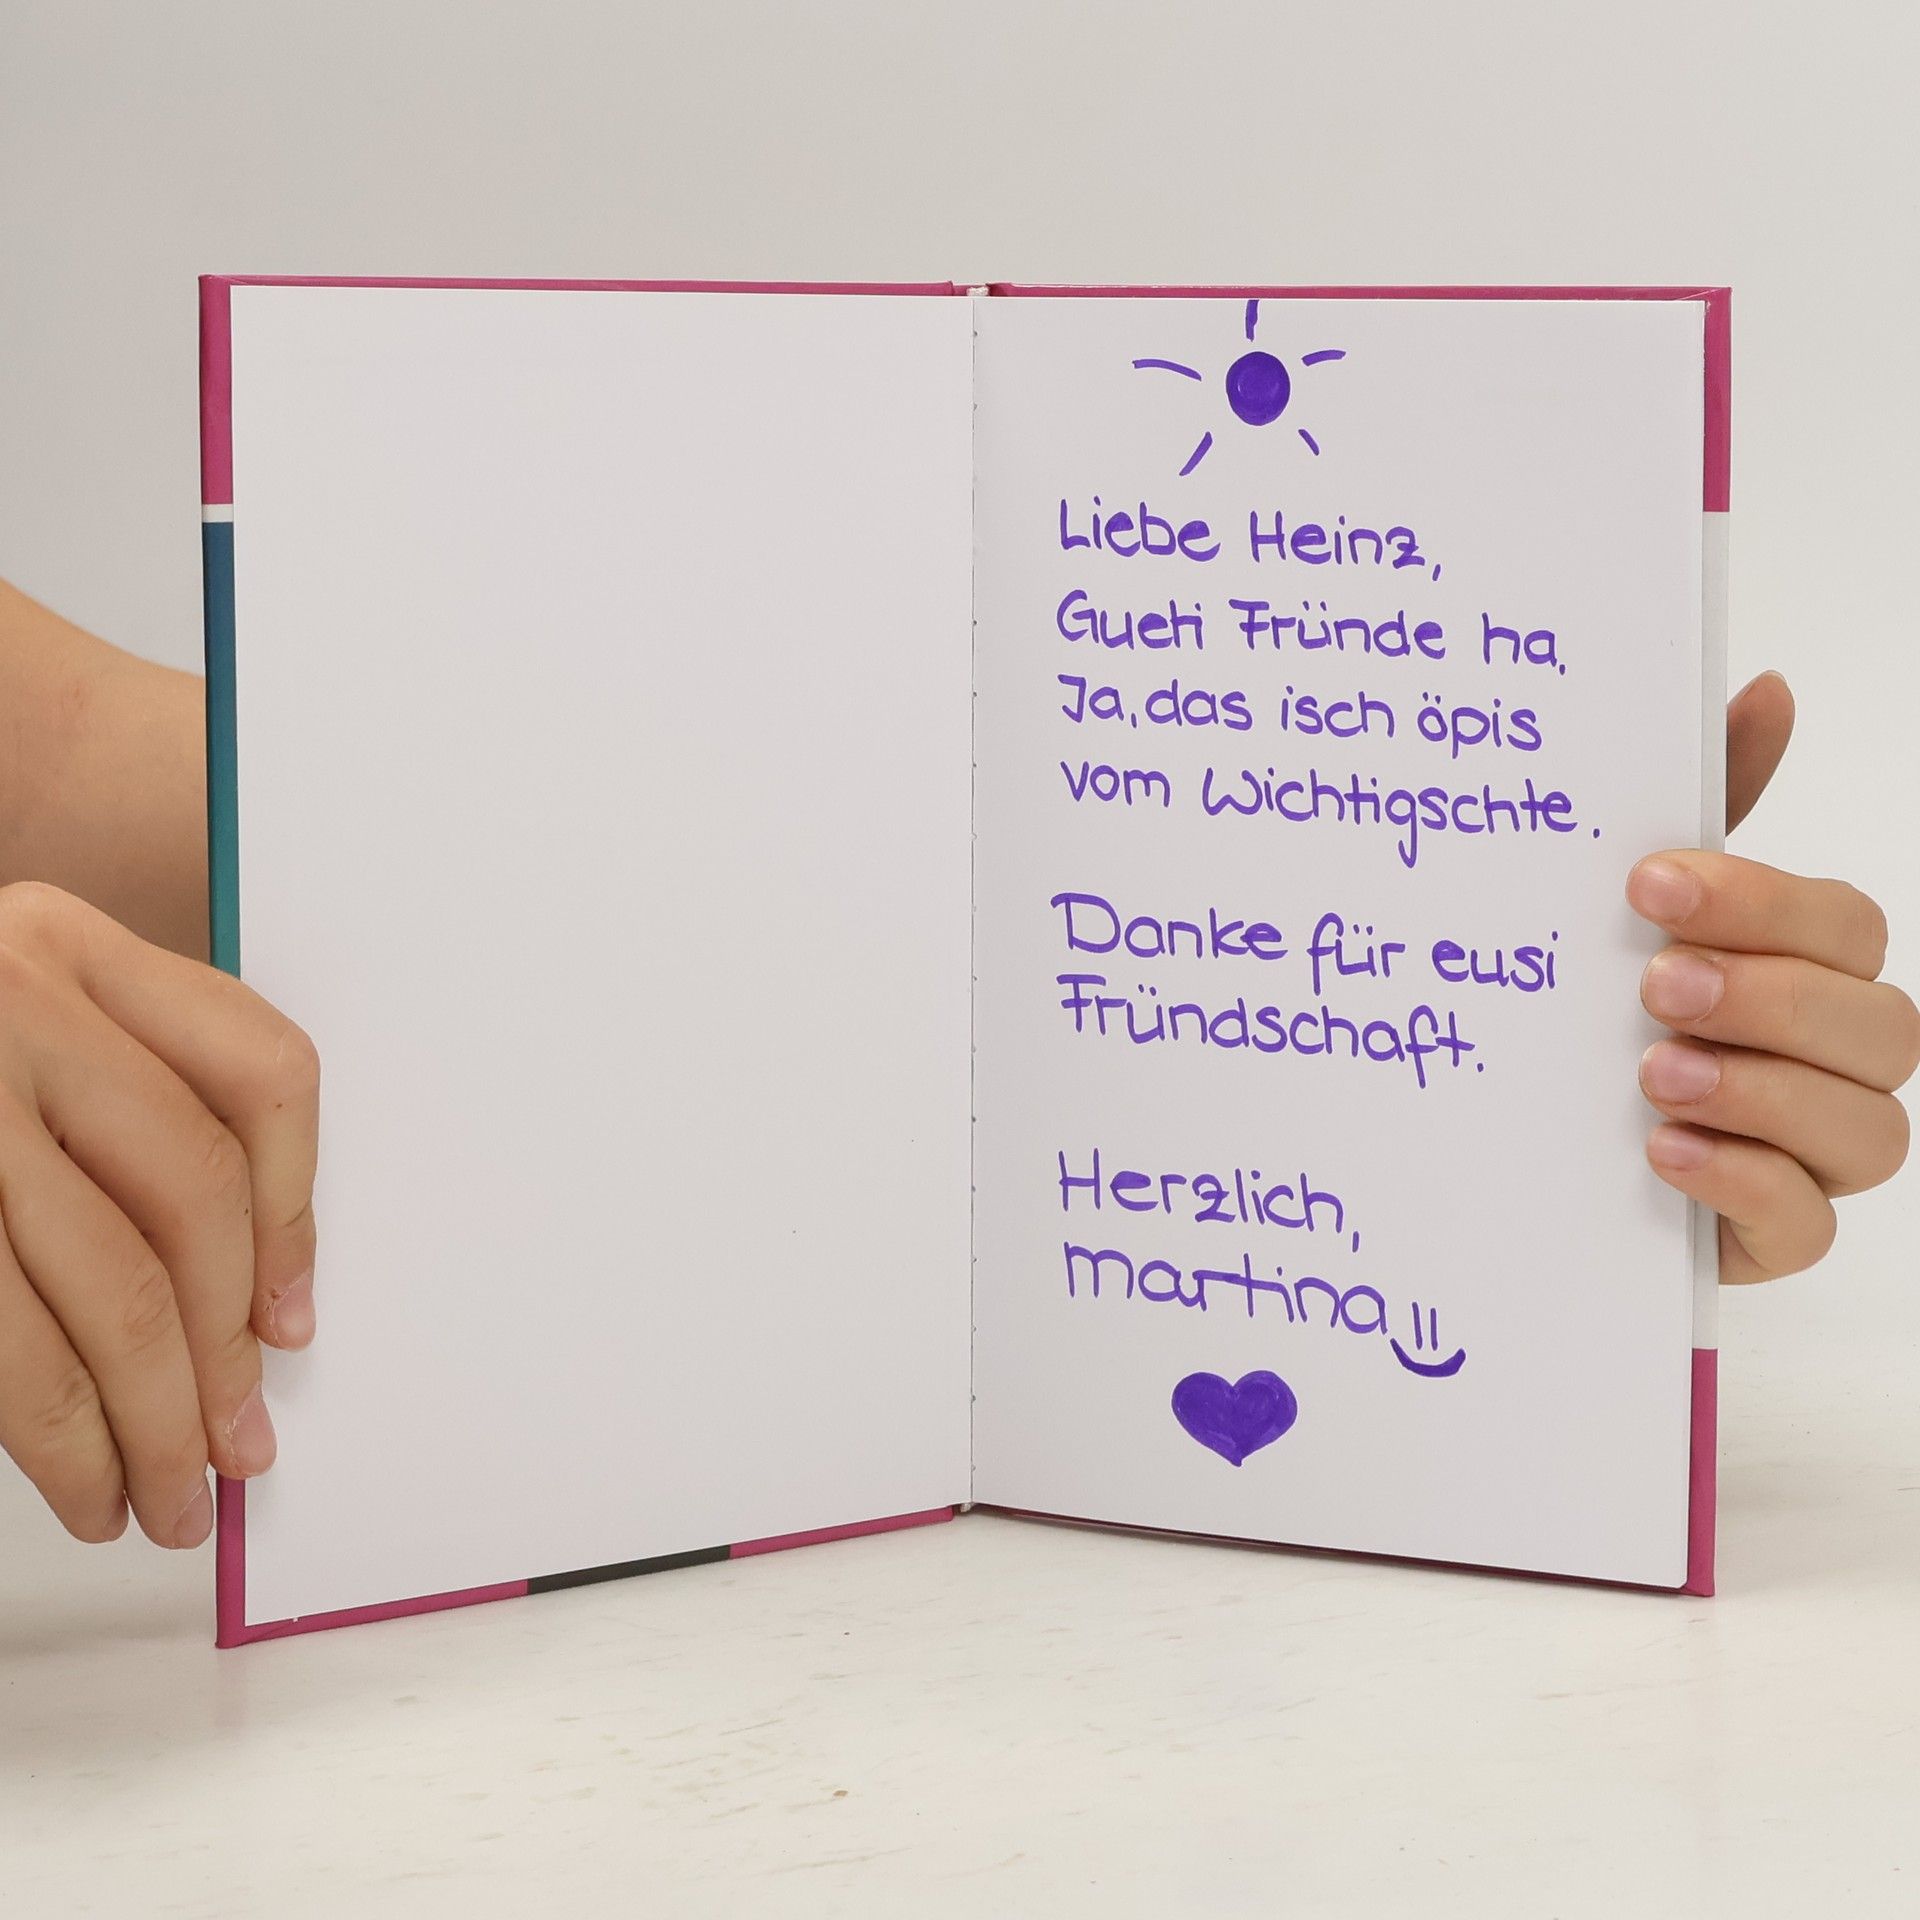 Liebe Heinz,
Gueti Fründe ha.
Ja, das isch öpis
vom Wichtigschte.
Danke für eusi
Fründschaft.
Herzlich,
Martina